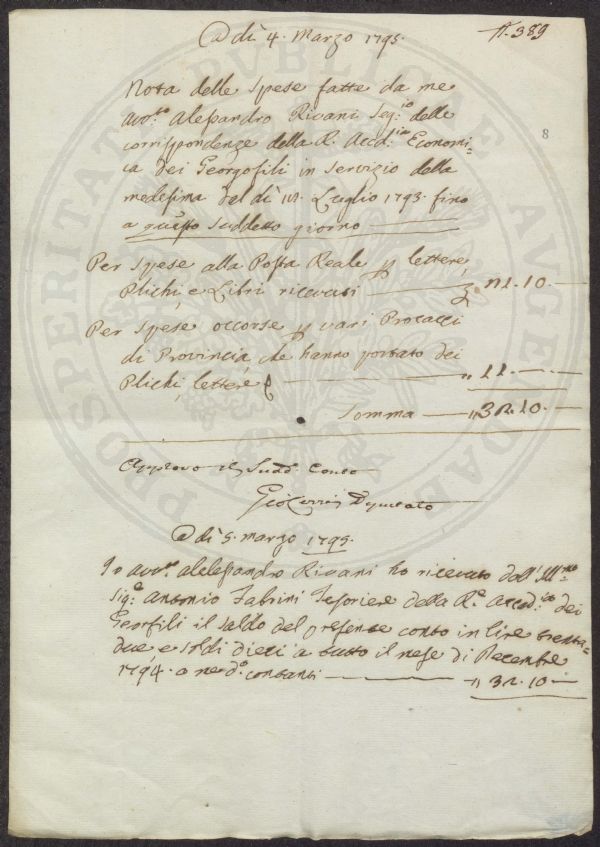 A dì 4. Marzo 1795.
N. 389
8
Nota delle Spese fatte da me
Avv.to Alessandro Rivani Seg.rio delle
corrispondenze della R. Accd.ia Economi=
ca dei Georgofili in servizio della
medesima del dì Luglio 1793. fino
a questo suddetto giorno
Per spese alla Posta Reale p lettere,
Plichi, e Libri ricevuti 21.10.
Per spese occorse p vari Procacci
di Provincia che hanno portato dei
Plichi, lettere " 11.
Somma " 32.10.
Approvo il Sudd. Conto
Deputato
A dì 5. marzo 1795.
Io Avv.to Alessandro Rivani ho ricevuto dall'Ill.mo
Sig.e Antonio Fabrini Tesoriere della R.e Accad.ia dei
Georfili il saldo del presente conto in lire trenta=
due, e soldi dieci a tutto il mese di Decembre
1794. a me d.o contanti " 32.10.
PROSPERITATI PUBLICAE AUGENDAE